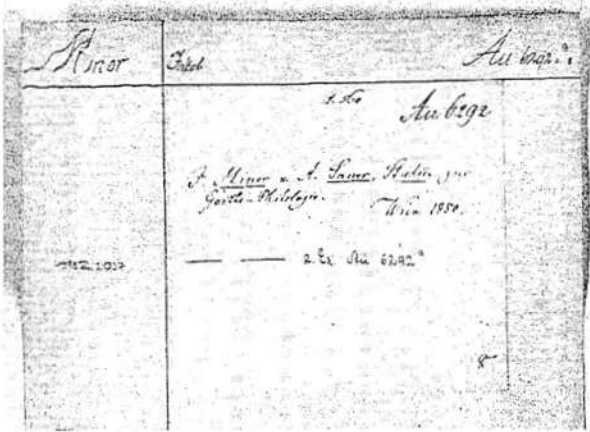 Minor Jakob Au 6292.a:
Au 6292
J. Minor u. A. Sauer, Studien zur
Goethe-Philologie. Wien 1880.
— — 2. Ex Au 6292 a
8°